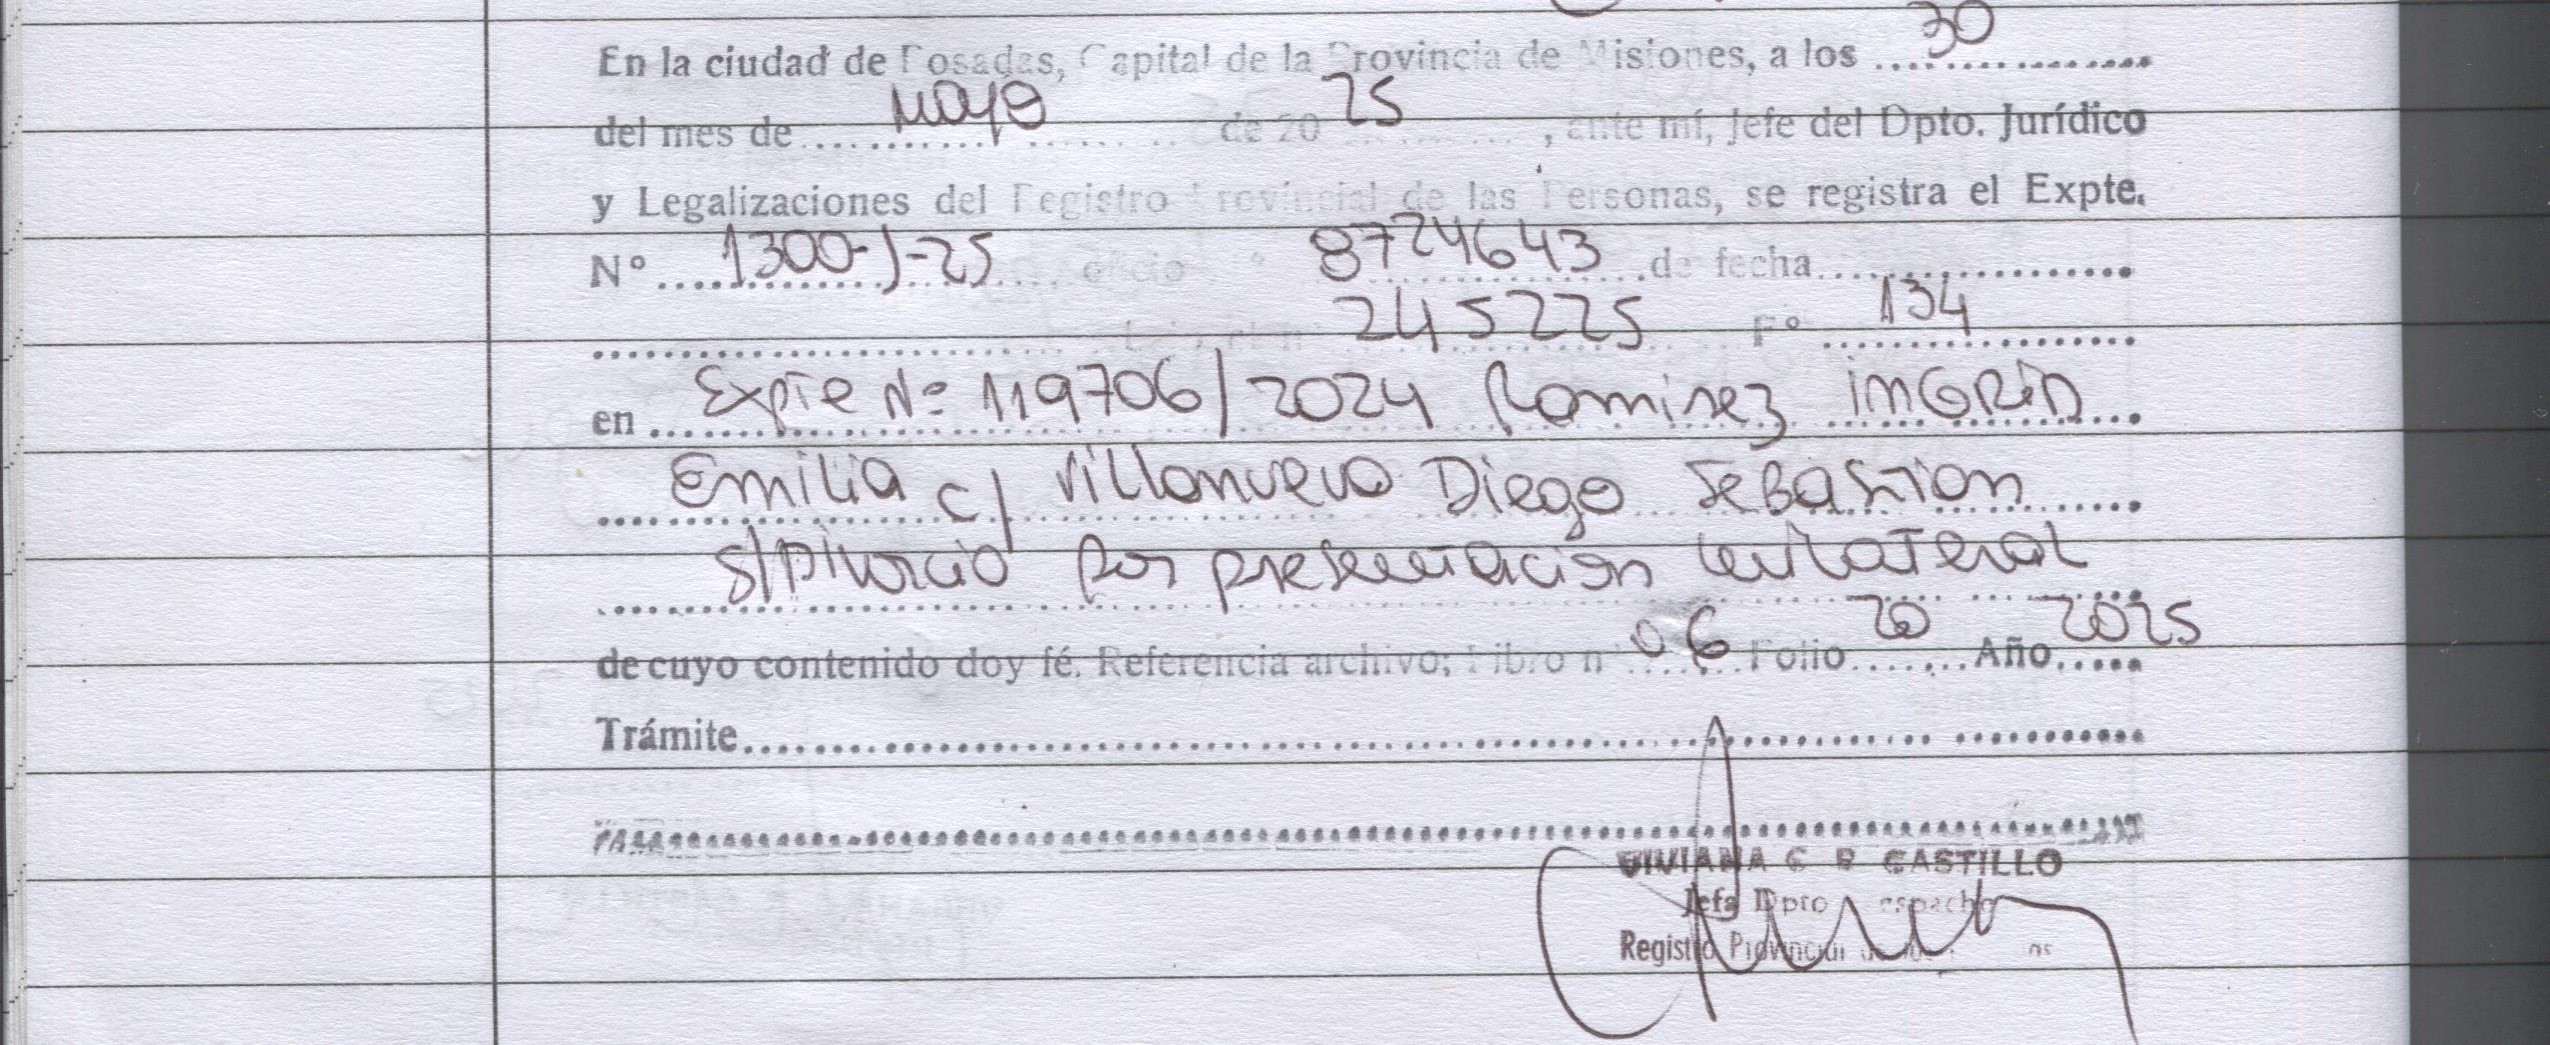 En la ciudad de Posadas, Capital de la Provincia de Misiones, a los 30
del mes de Mayo de 2025, ante mí, Jefe del Dpto. Jurídico
y Legalizaciones del Registro Provincial de las Personas, se registra el Expte.
Nº 1300-J-25 oficio 8724643 de fecha
245225 Fº 134
en Expte Nº 119706/2024 Ramirez INGRID
Emilia c/ Villanueva Diego Sebastian
s/Divorcio por presentación unilateral
de cuyo contenido doy fé. Referencia archivo; Libro nº 06 Folio 20 Año 2025
Trámite
VIVIANA C CASTILLO
Jefa Dpto
Registro Provincial